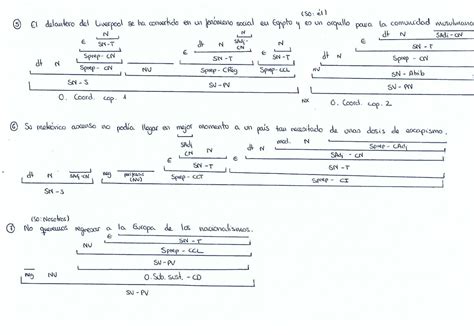 (SO: él)
⑤ El delantero del Liverpool se ha convertido en un fenómeno social en Egipto y es un orgullo para la comunidad musulmana.
N N dt N SAdj-CN
E SN-T dt N SAdj-CN E SN-T E SN-T
dt N Sprep-CN SN-T Sprep-CCL dt N Sprep-CN
NV Sprep-CReg NV SN-Atrib
SN-S SV-PV SV-PN
O. Coord. cop. 1 NX O. Coord. cop. 2
⑥ Su meteórico ascenso no podía llegar en mejor momento a un país tan necesitado de unas dosis de escapismo.
SAdj-CN N dt N mod. N Sprep-CAdj
E SN-T E SAdj-CN
dt N SAdj-CN neg (NV) Sprep-CCT SN-T
SN-S Sprep-CI
(SO: Nosotros)
⑦ No queremos regresar a la Europa de los nacionalismos.
E SN-T
NV Sprep-CCL
SV-PV
neg NV O. Sub. sust.-CD
SV-PV